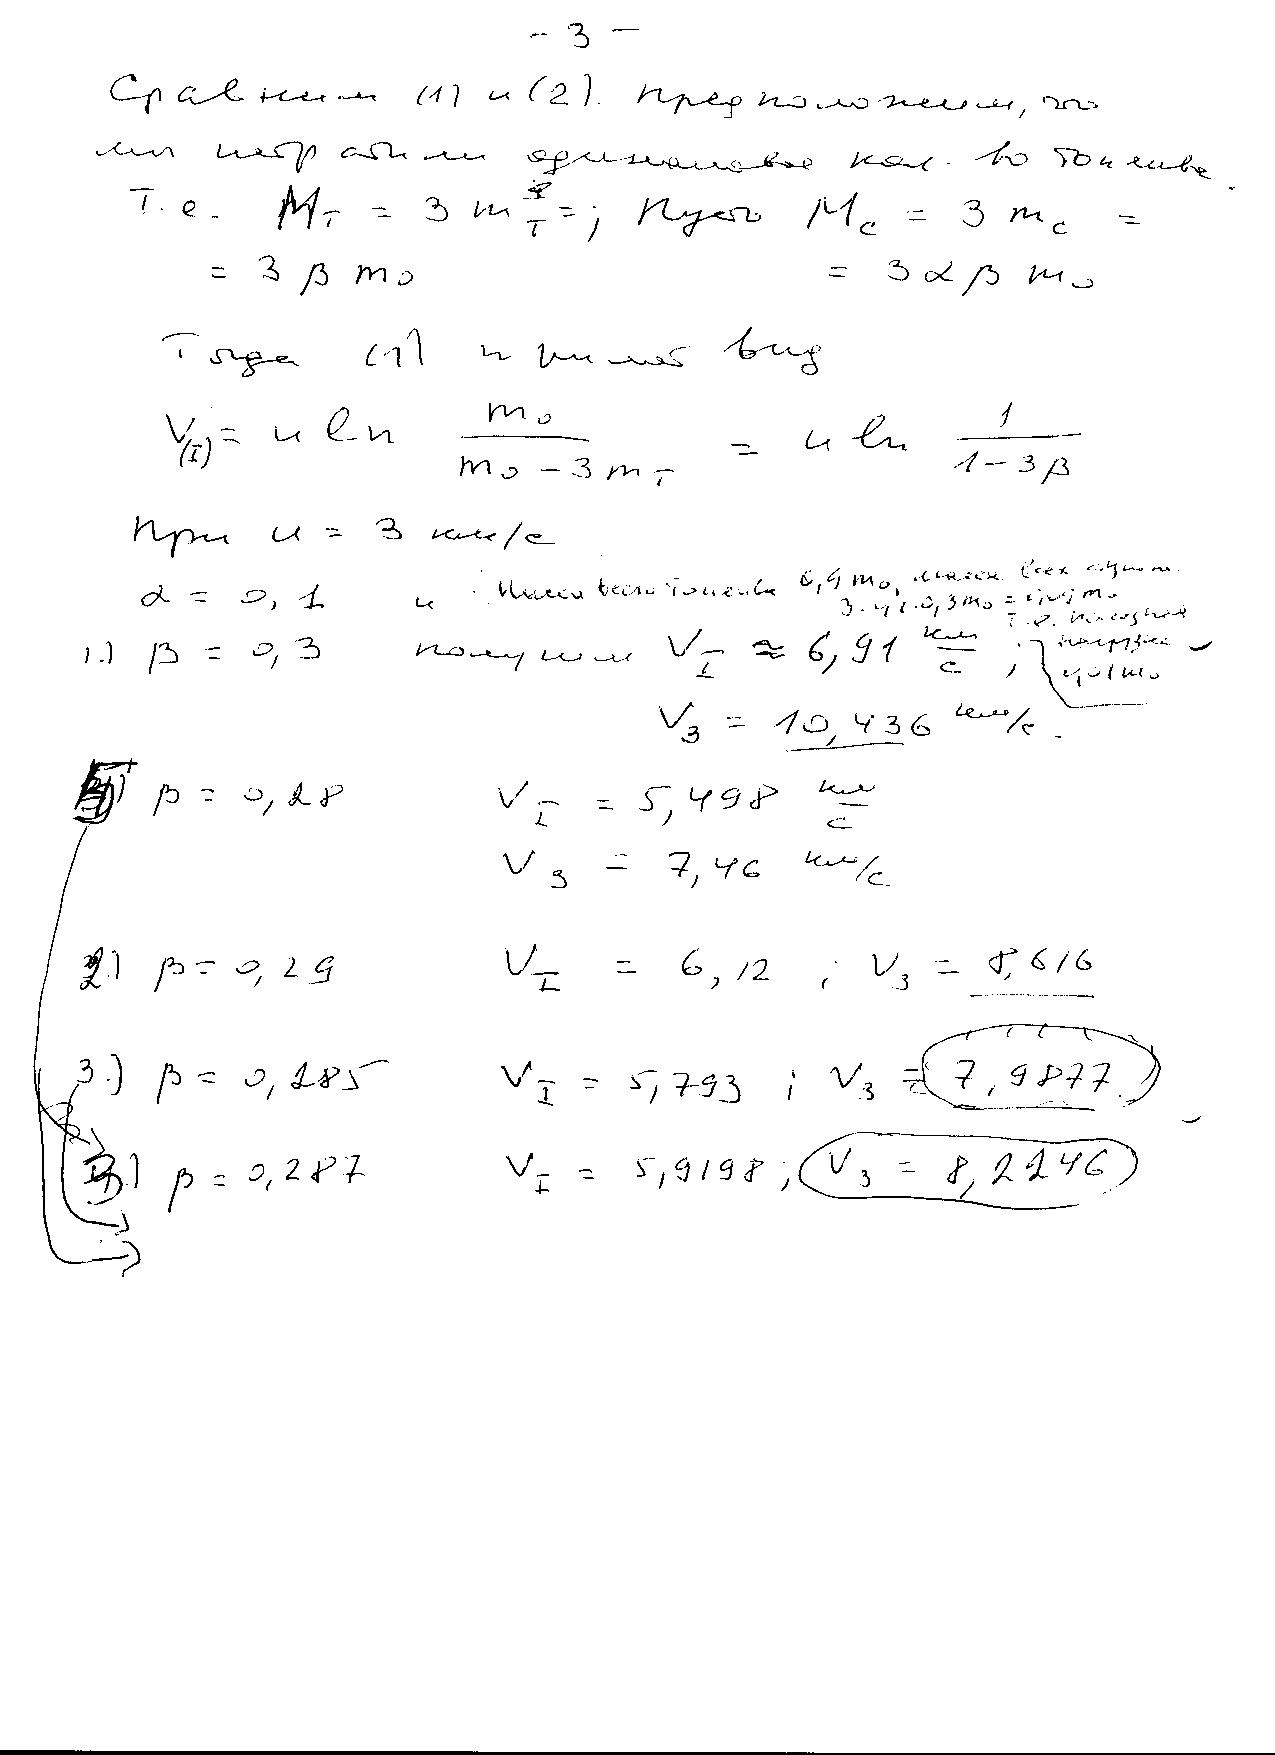 - 3 -
Сравним (1) и (2). Предположим, что
мы истратили одинаковое кол. во топлива.
Т.е. M_T = 3 m_T^I =; Пусть M_c = 3 m_c =
= 3 β m_0 = 3 α β m_0
Тогда (1) примет вид
V_(I) = u ln m_0 / (m_0 - 3 m_T) = u ln 1 / (1 - 3β)
При u = 3 км/с
α = 0,1 и Масса всего топлива 0,9 m_0, масса всех ступен.
3·0,1·0,3 m_0 = 0,09 m_0
т.е. полезная
1.) β = 0,3 получим V_I ≈ 6,91 км/с ; нагрузка
0,01 m_0
V_3 = 10,436 км/с.
β = 0,28 V_I = 5,498 км/с
V_3 = 7,46 км/с
2.) β = 0,29 V_I = 6,12 ; V_3 = 8,616
3.) β = 0,285 V_I = 5,793 ; V_3 = 7,9877
β = 0,287 V_I = 5,9198; V_3 = 8,2246